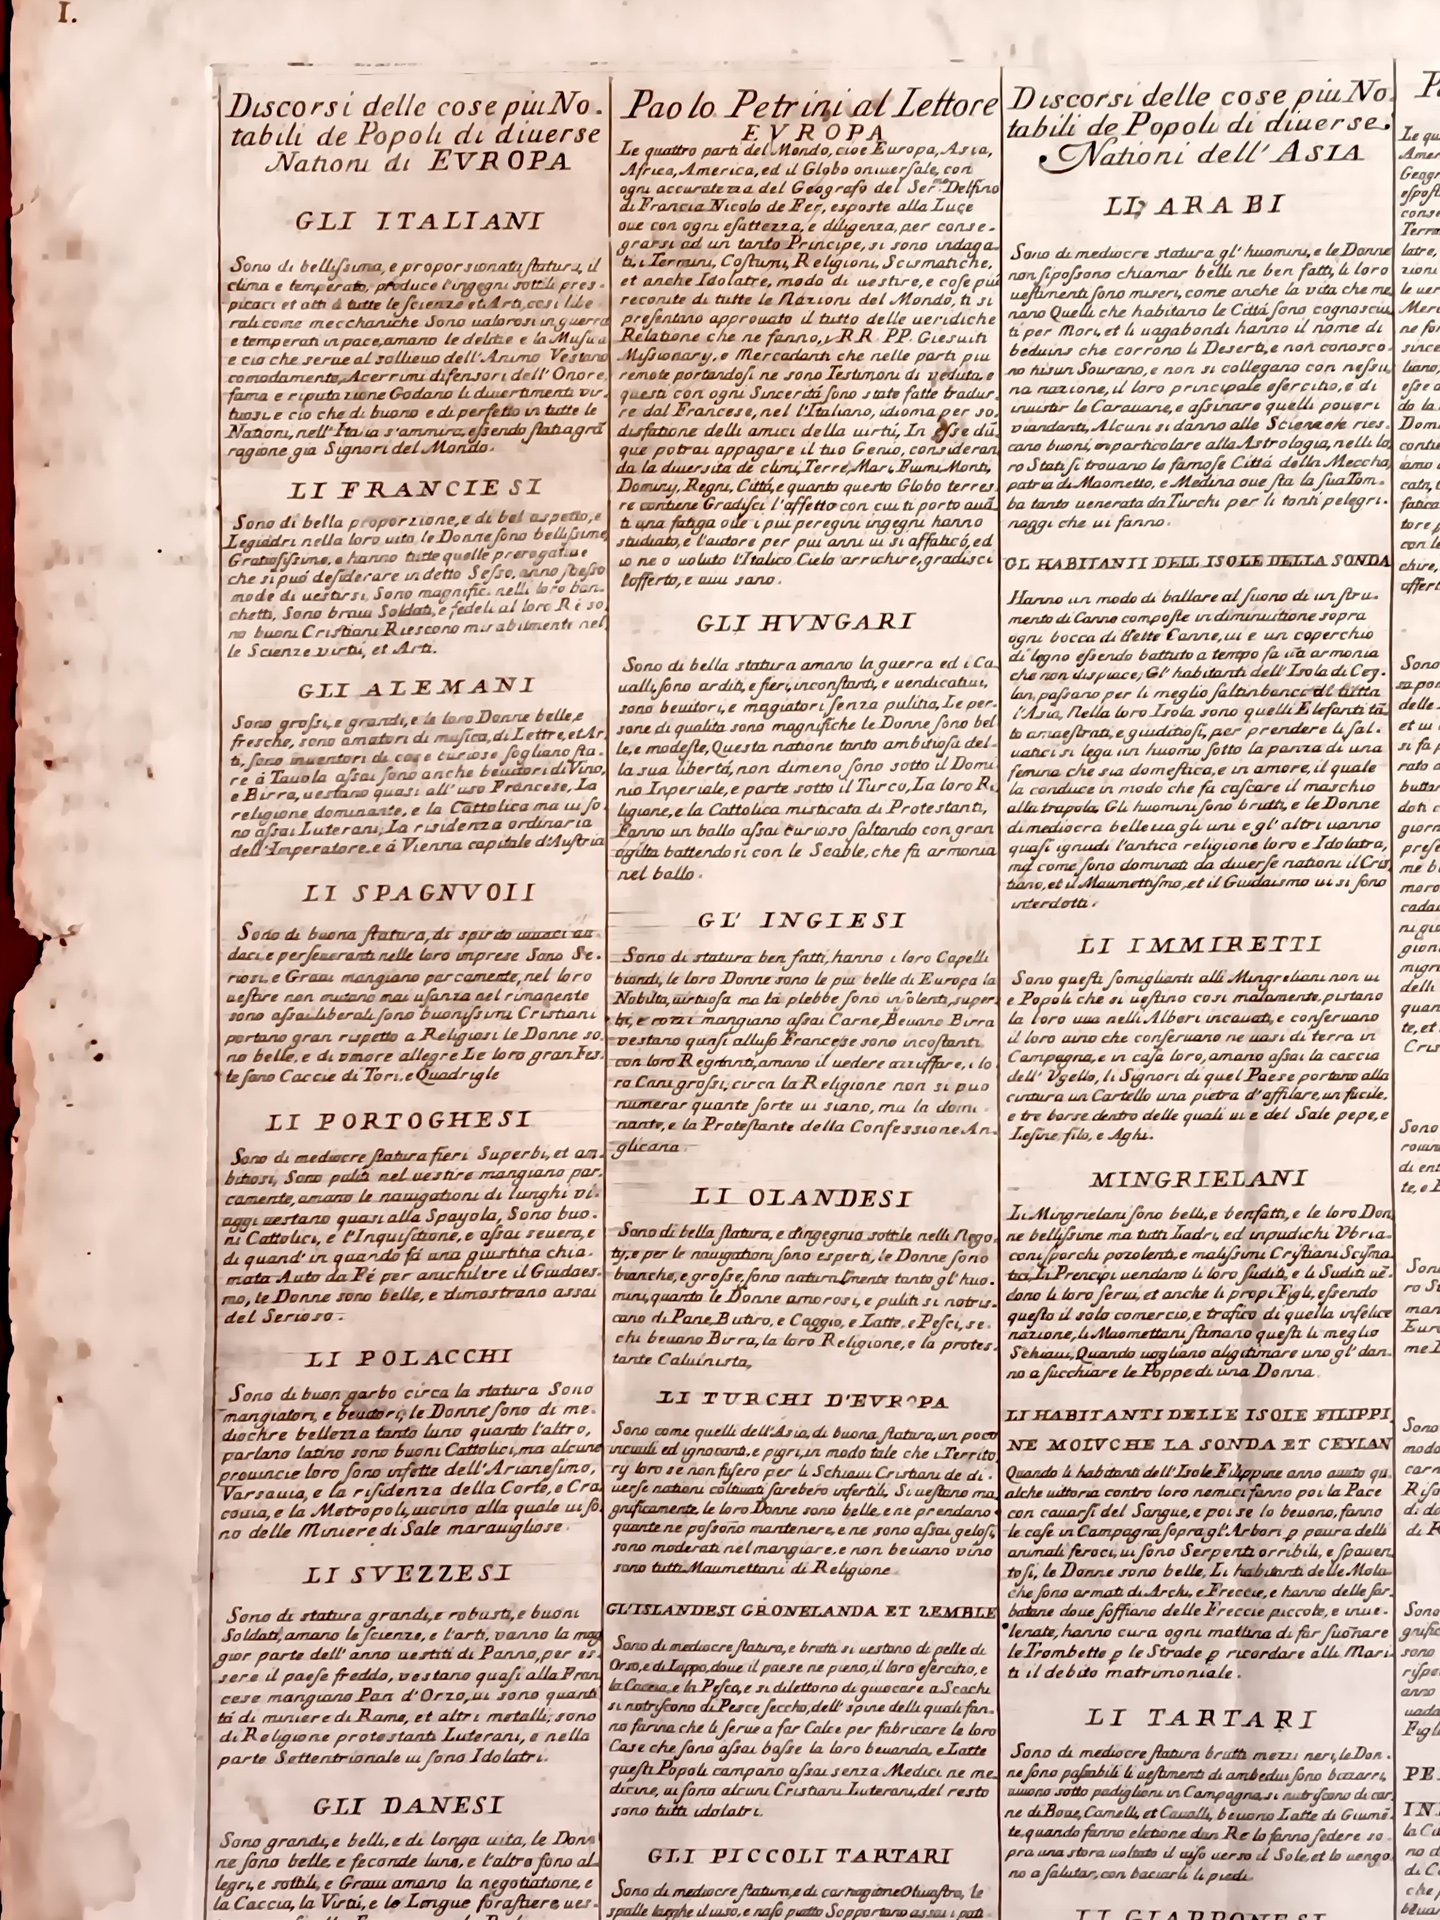 I.
Discorsi delle cose piu No-
tabili de Popoli di diuerse
Nationi di EVROPA
GLI ITALIANI
Sono di bellissima, e proporsionata statura, il
clima e temperato, produce l'ingegni sottili pres-
picaci et atti á tutte le scienze et Arti, cosi libe
rali come mecchaniche Sono ualorosi in guerra
e temperati in pace, amano le delitie e la Musica
e cio che serue al sollieuo dell'Animo Vestano
comodamente, Acerrimi difensori dell'Onore,
fama e riputazione Godano li diuertimenti vir-
tuosi, e cio che di buono e di perfetto in tutte le
Nationi, nell'Italia s'ammira, essendo stati a grã
ragione gia Signori del Mondo.
LI FRANCIESI
Sono di bella proporzione, e di bel aspetto, e
Legiadri nella loro uita, le Donne sono bellissime,
Gratiosissime, e hanno tutte quelle prerogatiue
che si puó desiderare in detto Sesso, anno spesso
mode di uestirsi, Sono magnifici nelli loro ban-
chetti, Sono braui Soldati, e fedeli al loro Ré so.
no buoni Cristiani Riescono mirabilmente nel,
le Scienze virtú, et Arti.
GLI ALEMANI
Sono grossi, e grandi, e le loro Donne belle, e
fresche, sono amatori di musica, di Lettre, et Ar,
ti, sono inventori di cose curiose sogliano sta-
re á Tauola assai sono anche beuitori di Vino,
e Birra, uestano quasi all'uso Francese, La
religione dominante, e la Cattolica ma ui so-
no assai Luterani, La risidenza ordinaria
dell'Imperatore e á Vienna capitale d'Austria
LI SPAGNVOII
Sono di buona statura, di spirito uiuaci au
daci, e perseueranti nelle loro imprese Sono Se-
riosi, e Graui mangiano parcamente, nel loro
uestire non mutano mai usanza nel rimanente
sono assai liberali sono buonissimi Cristiani
portano gran rispetto a Religiosi le Donne so.
no belle, e di vmore allegre Le loro gran Fes-
te sono Caccie di Tori, e Quadrigle
LI PORTOGHESI
Sono di mediocre statura fieri Superbi, et am-
bitiosi, Sono puliti nel uestire mangiano par-
camente, amano le nauigationi di lunghi vi-
aggi uestano quasi alla Spayola, Sono buo-
ni Cattolici, e l'Inquisitione, e assai seuera, e
di quand'in quando fá una giustitia chia-
mata Auto da Fé per anichilere il Giudaes-
mo, le Donne sono belle, e dimostrano assai
del Serioso.
LI POLACCHI
Sono di buon garbo circa la statura Sono
mangiatori, e beuitori, le Donne sono di me-
diochre bellezza tanto luno quanto l'altro,
parlano latino sono buoni Cattolici, ma alcune
prouincie loro sono infette dell'Arianesimo,
Varsauia, e la risidenza della Corte, e Cra
couia, e la Metropoli, uicino alla quale ui so-
no delle Miniere di Sale marauigliose.
LI SVEZZESI
Sono di statura grandi, e robusti, e buoni
Soldati, amano le scienze, e l'arti, vanno la mag
gior parte dell'anno uestiti di Panno, per es-
sere il paese freddo, vestano quasi alla Fran
cese mangiano Pan d'Orzo, ui sono quanti
tá di miniere di Rame, et altri metalli, sono
di Religione protestanti Luterani, e nella
parte Settentrionale ui sono Idolatri.
GLI DANESI
Sono grandi, e belli, e di longa uita, le Don
ne sono belle, e feconde luno, e l'altro sono al-
legri, e sottili, e Graui amano la negotiatione, e
la Caccia, la Virtú, e le Lingue forastiere, ues-
Paolo Petrini al Lettore
EVROPA
Le quattro parti del Mondo, cioe Europa, Asia,
Africa, America, ed il Globo oniuersale, con
ogni accuratezza del Geografo del Ser.mo Delfino
di Francia Nicolo de Fer, esposte alla Luce
oue con ogni esattezza, e diligenza, per conse-
grarsi ad un tanto Principe, si sono indaga-
ti, i Termini, Costumi, Religioni, Scismatiche,
et anche Idolatre, modo di uestire, e cose piú
recondite di tutte le Nazioni del Mondo, ti si
presentano approuato il tutto delle ueridiche
Relatione che ne fanno, i RR PP. Giesuiti
Missionary, e Mercadanti che nelle parti piu
remote portandosi ne sono Testimoni di veduta, e
questi con ogni Sincerità sono state fatte tradur-
re dal Francese, nel l'Italiano, idioma per so.
disfatione delli amici della uirtú, In esse dũ.
que potrai appagare il tuo Genio, consideran
do la diuersita de climi, Terre, Mari, Fiumi, Monti,
Dominy, Regni, Cittá, e quanto questo Globo terres.
re contiene Gradisci l'affetto con cui ti porto auã
ti una fatiga oue i piu peregini ingegni hanno
studiato, e l'autore per piu anni ui si affaticó, ed
io ne o uoluto l'Italico Cielo arrichire, gradisci
l'offerto, e uiui sano.
GLI HVNGARI
Sono di bella statura amano la guerra ed i Ca
ualli, sono arditi, e fieri, inconstanti, e uendicatiui,
sono beuitori, e magiatori senza pulitia, Le per-
sone di qualita sono magnifiche le Donne sono bel
le, e modeste, Questa natione tanto ambitiosa del-
la sua libertá, non dimeno sono sotto il Domi
nio Inperiale, e parte sotto il Turco, La loro Re
ligione, e la Cattolica misticata di Protestanti,
Fanno un ballo assai curioso saltando con gran
agilta battendosi con le Scable, che fá armonia
nel ballo.
GL' INGIESI
Sono di statura ben fatti, hanno i loro Capelli
biondi, le loro Donne sono le piu belle di Europa la
Nobilta, uirtuosa ma la plebbe sono insolenti, super
bi, e rozzi mangiano assai Carne, Beuano Birra
vestano quasi alluso Francese sono incostanti
con loro Regnanti, amano il uedere azziffare, i lo
ro Cani grossi, circa la Religione non si puo
numerar quante sorte ui siano, ma la domi-
nante, e la Protestante della Confessione An-
glicana.
LI OLANDESI
Sono di bella statura, e d'ingegnio sottile nelli Nego-
ty, e per le nauigationi sono esperti, le Donne sono
bianche, e grosse, sono naturalmente tanto gl'huo.
mini, quanto le Donne amorosi, e puliti si notris-
cano di Pane, Butiro, e Caggio, e Latte, e Pesci, se-
chi beuano Birra, la loro Religione, e la protes-
tante Caluinista,
LI TURCHI D'EVROPA
Sono come quelli dell'Asia, di buona statura, un poco
inciuili ed ignoranti, e pigri, in modo tale che i Territo,
ry loro se non fusero per li Schiaui Cristiani de di-
uerse nationi coltiuati sarebero infertili. Si uestano ma
gnificamente, le loro Donne sono belle, e ne prendano
quante ne possono mantenere, e ne sono assai gelosi,
sono moderati nel mangiare, e non beuano vino
sono tutti Maumettani di Religione
GL'ISLANDESI GRONELANDA ET ZEMBLE
Sono di mediocre statura, e brutti si uestano di pelle di
Orso, e di Lappo, doue il paese ne pieno, il loro esercitio, e
la Caccia, e la Pesca, e si dilettono di giuocare a Scachi
si notriscono di Pesce seccho, dell'spine delli quali fan-
no farina che li serue a far Calce per fabricare le loro
Case che sono assai basse la loro beuanda, e Latte
questi Popoli campano assai senza Medici ne me-
dicine, ui sono alcuni Cristiani Luterani, del resto
sono tutti idolatri.
GLI PICCOLI TARTARI
Sono di mediocre statura, e di carnagione Oliuastra, le
spalle larghe il uiso, e naso piatto Sopportano assai i pati
Discorsi delle cose piu No.
tabili de Popoli di diuerse
Nationi dell'ASIA
LI ARABI
Sono di mediocre statura gl'huomini, e le Donne
non si possono chiamar belli ne ben fatti, li loro
uestimenti sono miseri, come anche la vita che me
nano Quelli che habitano le Cittá sono cognosciu
ti per Mori, et li uagabondi hanno il nome di
beduins che corrono li Deserti, e non conosco-
no nisun Sourano, e non si collegano con nessu,
na nazione, il loro principale esercitio, e di
inuistir le Carauane, e assinare quelli poueri
viandanti, Alcuni si danno alle Scienese ries-
cano buoni, in particolare alla Astrologia, nelli lo
ro Stati si trouano le famose Cittá della Meccha,
patria di Maometto, e Medina oue sta la sua Tom-
ba tanto venerata da Turchi per li tanti pelegri-
naggi che ui fanno.
GL HABITANTI DELL ISOLE DELLA SONDA
Hanno un modo di ballare al suono di un stru-
mento di Canno composte in diminuitione sopra
ogni bocca di dette Canne, ui e un coperchio
di legno essendo battuto a tempo fa una armonia
che non dispiace; Gl'habitanti dell'Isola di Cey-
lan, passano per li meglio saltinbanco de tutta
l'Asia, Nella loro Isola sono quelli Elefanti tã
to amaestrati, e giuditiosi, per prendere li sal-
uatici si lega un huomo sotto la panza di una
femina che sia domestica, e in amore, il quale
la conduce in modo che fa cascare il maschio
alla trapola, Gli huomini sono brutti, e le Donne
di mediocra bellezza gli uni e gl'altri uanno
quasi ignudi l'antica religione loro e Idolatra,
ma come sono dominati da diuerse nationi il Cris
tiano, et il Maumettismo, et il Giudaismo ui si sono
interdotti.
LI IMMIRETTI
Sono questi somigliante alli Mingreliani non ui
e Popoli che si uestino cosi malamente, pistano
la loro uua nelli Albori incauati, e conseruano
il loro uino che conseruano ne uasi di terra in
Campagna, e in casa loro, amano assai la caccia
dell'Vgello, li Signori di quel Paese portano alla
cintura un Cortello una pietra d'affilare, un fucile,
e tre borse dentro delle quali ui e del Sale pepe, e
Lesine, filo, e Aghi.
MINGRIELANI
Li Mingrielani sono belli, e benfatti, e le loro Don,
ne bellissime ma tutti Ladri, ed inpudichi Vbria-
coni sporchi pozolenti, e malissimi Cristiani Scisma
tici, Li Prencipi uendano li loro suditi, e li Suditi uẽ-
dono li loro serui, et anche li propi Figli, essendo
questo il solo comercio, e trafico di quella infelice
nazione, li Maomettani stimano questi li meglio
Schiaui, Quando uogliano aligitimare uno gl'dan-
no a succhiare le Poppe di una Donna
LI HABITANTI DELLE ISOLE FILIPPI,
NE MOLVCHE LA SONDA ET CEYLAN
Quando li habitanti dell'Isole Filippine anno auuto qu-
alche uittoria contro loro nemici fanno poi la Pace
con cauarsi del Sangue, e poi se lo beuono, fanno
le case in Campagna sopra gl'Arbori p paura delli
animali feroci, ui sono Serpenti orribili, e spauen
tosi, le Donne sono belle, Li habitanti delle Molu
che sono armati di Archi, e Freccie, e hanno delle sar
batane doue soffiano delle Freccie piccole, e inue-
lenate, hanno cura ogni mattina di far suonare
le Trombette p le Strade p ricordare alli Mari
ti il debito matrimoniale.
LI TARTARI
Sono di mediocre statura brutti mezzi neri, le Don-
ne sono passabili li uestimenti di ambedui sono bizarri,
uiuono sotto padiglioni in Campagna, si nutriscono di car,
ne di Boue, Camelli, et Caualli, beuono Latte di Giumẽ-
te, quando fanno eletione d'un Re lo fanno sedere so-
pra una stora uoltato il uiso uerso il Sole, et lo uengo-
no a salutar, con baciarli li piedi
LI GIAPPONESI